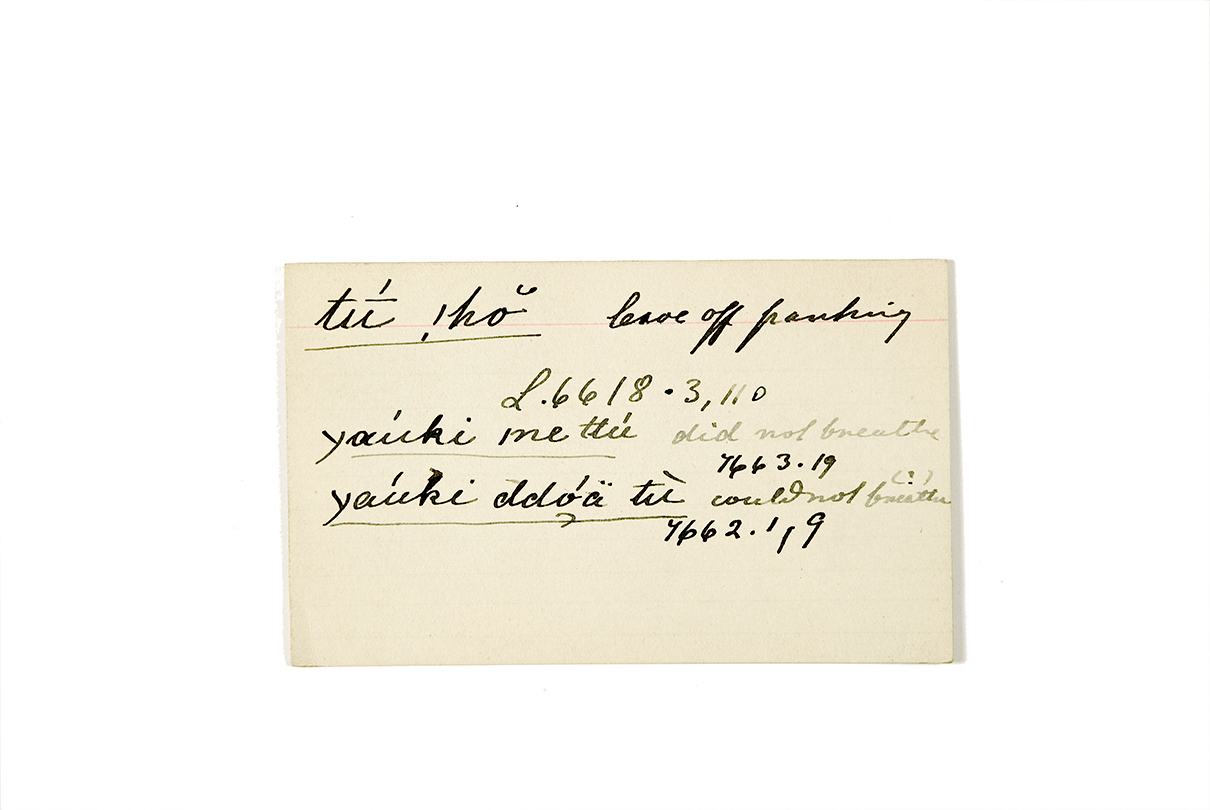 tú ǃhŏ leave off panting
L.6618.3, 110
yaúki ine ttú did not breathe
7663.19
yaúki ddóä tù could not breathe (?)
7662.1, 9